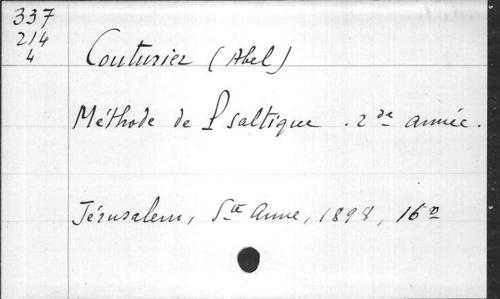 337
214
4
Couturier (Abel)
Méthode de Psaltique. 2de année.
Jérusalem, Ste Anne, 1898, 16°